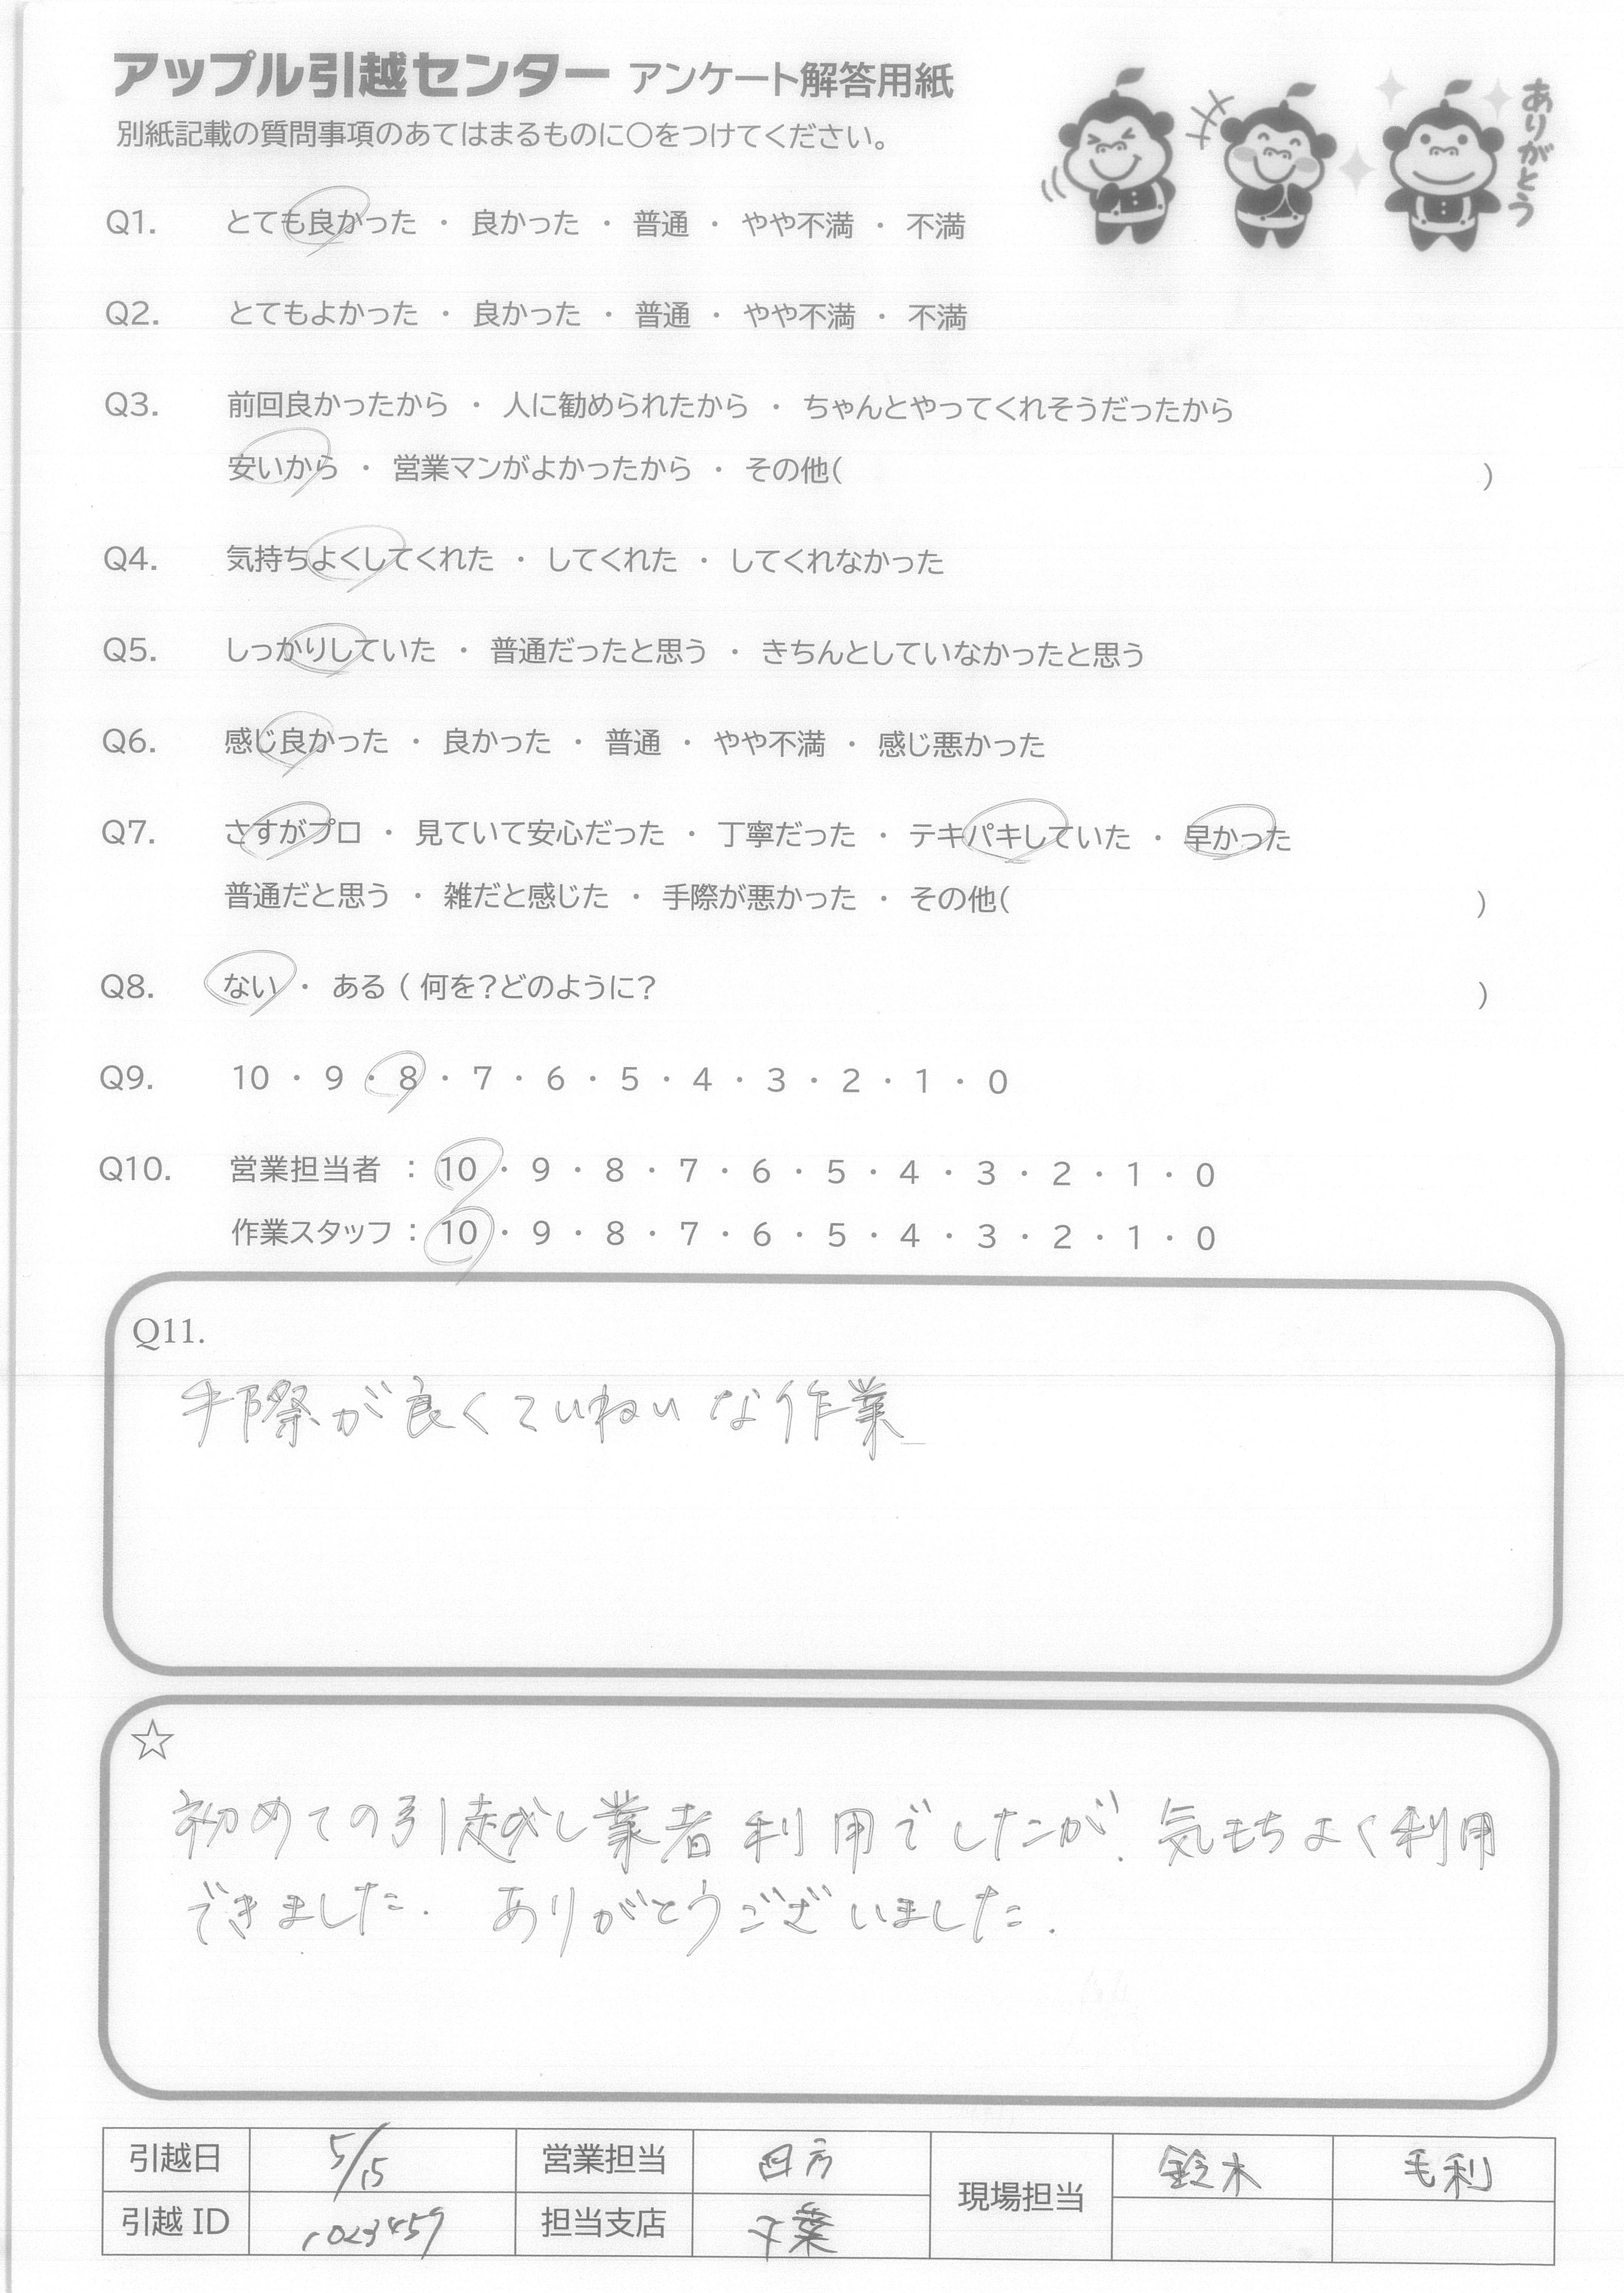 アップル引越センター アンケート解答用紙
別紙記載の質問事項のあてはまるものに〇をつけてください。
ありがとう
Q1. とても良かった ・ 良かった ・ 普通 ・ やや不満 ・ 不満
Q2. とてもよかった ・ 良かった ・ 普通 ・ やや不満 ・ 不満
Q3. 前回良かったから ・ 人に勧められたから ・ ちゃんとやってくれそうだったから
安いから ・ 営業マンがよかったから ・ その他( )
Q4. 気持ちよくしてくれた ・ してくれた ・ してくれなかった
Q5. しっかりしていた ・ 普通だったと思う ・ きちんとしていなかったと思う
Q6. 感じ良かった ・ 良かった ・ 普通 ・ やや不満 ・ 感じ悪かった
Q7. さすがプロ ・ 見ていて安心だった ・ 丁寧だった ・ テキパキしていた ・ 早かった
普通だと思う ・ 雑だと感じた ・ 手際が悪かった ・ その他( )
Q8. ない ・ ある ( 何を?どのように? )
Q9. 10 ・ 9 ・ 8 ・ 7 ・ 6 ・ 5 ・ 4 ・ 3 ・ 2 ・ 1 ・ 0
Q10. 営業担当者 : 10 ・ 9 ・ 8 ・ 7 ・ 6 ・ 5 ・ 4 ・ 3 ・ 2 ・ 1 ・ 0
作業スタッフ : 10 ・ 9 ・ 8 ・ 7 ・ 6 ・ 5 ・ 4 ・ 3 ・ 2 ・ 1 ・ 0
Q11.
手際が良くていねいな作業
☆
初めての引越し業者利用でしたが、気もちよく利用
できました. ありがとうございました.
引越日 5/15 営業担当 四方 現場担当 鈴木 毛利
引越 ID 1023459 担当支店 千葉